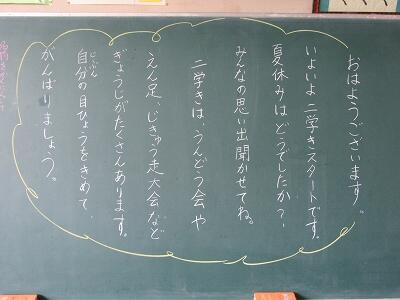 おはようございます。
いよいよ二学きスタートです。
夏休みはどうでしたか？
みんなの思い出聞かせてね。
二学きは、うんどう会や
えん足、じきゅう走大会など
ぎょうじがたくさんあります。
自分の目ひょうをきめて、
じぶん
がんばりましょう。